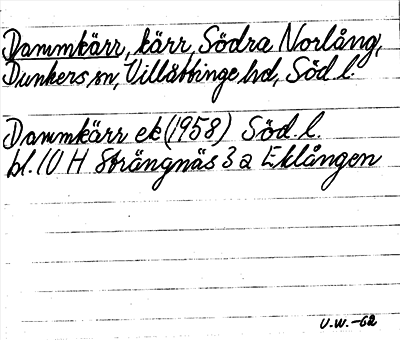 Dammkärr, kärr, Södra Norlång,
Dunkers sn, Villåttinge hd, Söd. l.
Dammkärr ek (1958) Söd. l.
bl. 10 H Strängnäs 3 a Eklången
U.W.-62